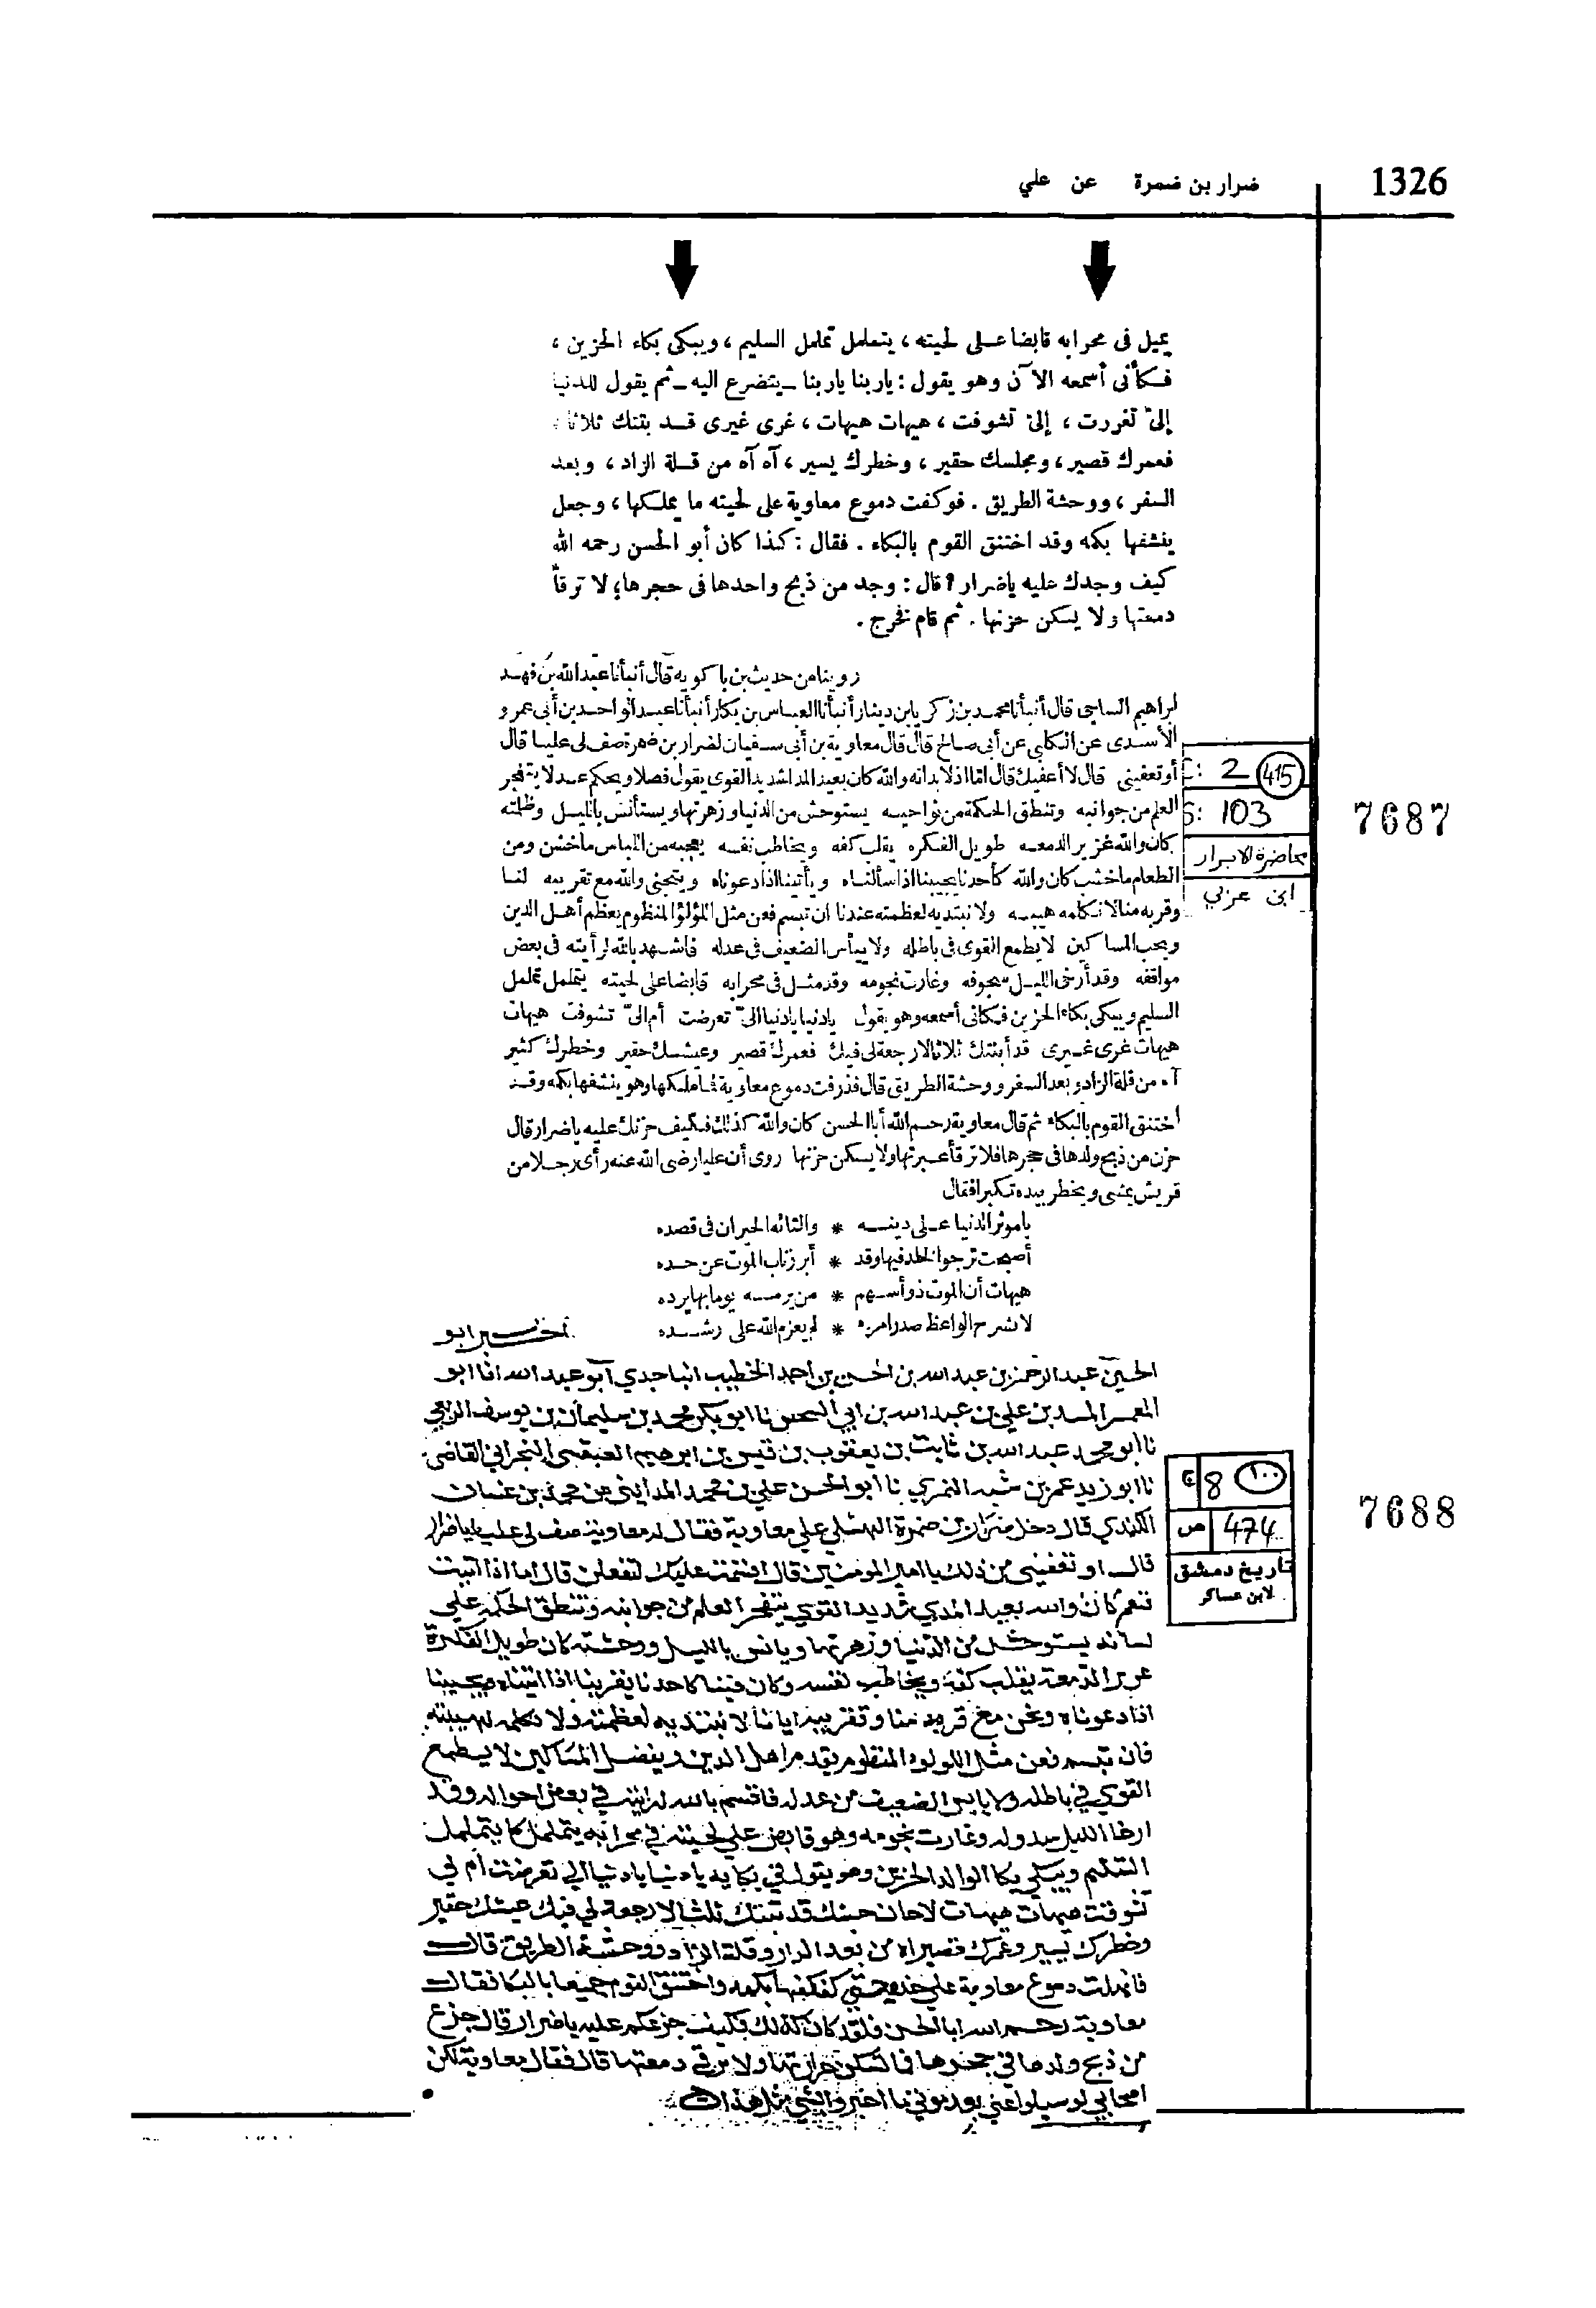 1326
ضرار بن ضمرة عن علي
يميل فى محرابه قابضا على لحيته ، يتململ تململ السليم ، ويبكى بكاء الحزين ،
فكأنى أسمعه الآن وهو يقول : ياربنا ياربنا ــ يتضرع اليه ــ ثم يقول للدنيا
إلىّ تغررت ، إلىّ تشوفت ، هيهات هيهات ، غرى غيرى قد بتتك ثلاثا ،
فعمرك قصير ، ومجلسك حقير ، وخطرك يسير ، آه آه من قلة الزاد ، وبعد
السفر ، ووحشة الطريق . فوكفت دموع معاوية على لحيته ما يملكها ، وجعل
ينشفها بكمه وقد اختنق القوم بالبكاء . فقال : كذا كان أبو الحسن رحمه الله
كيف وجدك عليه ياضرار ؟ قال : وجد من ذبح واحدها فى حجرها ؛ لا ترقأ
دمعتها ولا يسكن حزنها . ثم قام فخرج .
روينا من حديث بن باكويه قال أنبأنا عبد الله بن فهد
ابراهيم الساجى قال أنبأنا محمد بن زكريا بن دينار أنبأنا العباس بن بكار أنبأنا عبد الواحد بن أبى عمرو
الأسدى عن الكلبى عن أبى صالح قال قال معاوية بن أبى سفيان لضرار بن ضمرة صف لى عليا قال
أو تعفينى قال لا أعفيك قال اما اذ لابد انه والله كان بعيد المدا شديد القوى يقول فصلا ويحكم عدلا يتفجر
العلم من جوانبه وتنطق الحكمة من نواحيه يستوحش من الدنيا وزهرتها ويستأنس بالليل وظلمته
كان والله غزير الدمعه طويل الفكره يقلب كفه ويخاطب نفسه يعجبه من اللباس ماخشن ومن
الطعام ماخشب كان والله كأحدنا يجيبنا اذا سألناه ويأتينا اذا دعوناه ونحن والله مع تقريبه لنا
وقربه منا لا نكلمه هيبه ولا نبتديه لعظمته عندنا ان تبسم فعن مثل اللؤلؤ المنظوم يعظم أهل الدين
ويحب المساكين لا يطمع القوى فى باطله ولا ييأس الضعيف فى عدله فاشهد بالله لرأيته فى بعض
مواقفه وقد أرخى الليل سجوفه وغارت نجومه وقد مثل فى محرابه قابضا على لحيته يتململ تململ
السليم ويبكى بكاء الحزين فكانى أسمعه وهو يقول يادنيا يادنيا الىّ تعرضت أم الىّ تشوفت هيهات
هيهات غرى غيرى قد أبنتك ثلاثا لا رجعة لى فيك فعمرك قصير وعيشك حقير وخطرك كثير
آه من قلة الزاد وبعد السفر ووحشة الطريق قال فذرفت دموع معاوية فما ملكها وهو ينشفها بكمه وقد
اختنق القوم بالبكاء ثم قال معاوية رحم الله أبا الحسن كان والله كذلك فكيف حزنك عليه ياضرار قال
حزن من ذبح ولدها فى حجرها فلا ترقأ عبرتها ولا يسكن حزنها روى أن عليا رضى الله عنه رأى رجلا من
قريش يمشى ويخطر بيده تكبرا فقال
يا موثر الدنيا على دينه * والتائه الحيران فى قصده
أصبحت ترجو الخلد فيها وقد * أبرز ناب الموت عن حده
هيهات أن الموت ذو أسهم * من يرمه يوما بها يرده
لا نشرح الواعظ صدر امرء * لم يعزم الله على رشده
2 415
103
محاضرة الابرار
ابن عربي
7687
اخبرنا ابو
الحسين عبد الرحمن بن عبد الله بن الحسن بن احمد الخطيب انبا جدي ابو عبد الله انا ابو
المعمر المسدد بن علي بن عبد الله بن ابي السحيس نا ابو بكر محمد بن سليمان بن يوسف الربعي
نا ابو محمد عبد الله بن ثابت بن يعقوب بن قيس بن ابرهيم العبقسي النجراني القاضي
نا ابو زيد عمر بن شبه النمري نا ابو الحسن علي بن محمد المدايني عن محمد بن غسان
الكندي قال دخل ضرار بن ضمرة النهشلي علي معاوية فقال له معاوية صف لي عليا يا ضرار
قال او تعفيني من ذلك يا امير المومنين قال اقسمت عليك لتفعلن قال اما اذا ابيت
فنعم كان والله بعيد المدي شديد القوي يتفجر العلم من جوانبه وتنطق الحكمه علي
لسانه يستوحش من الدنيا وزهرتها ويانس بالليل ووحشته كان طويل الفكرة
غزير الدمعة يقلب كفه ويخاطب نفسه وكان فينا كاحدنا يقربنا اذا اتيناه ويجيبنا
اذا دعوناه ونحن مع قربه منا وتقريبه ايانا لا نبتديه لعظمته ولا نكلمه لهيبته
فان تبسم فعن مثل اللولو المنظوم يقدم اهل الدين ويفضل المساكين لا يطمع
القوي في باطله ولا يايس الضعيف من عدله فاقسم بالله لرايته في بعض احواله وقد
ارخا الليل سدوله وغارت نجومه وهو قابض علي لحيته في محرابه يتململ كما يتململ
السليم ويبكي بكا الواله الحزين وهو يقول في بكايه يا دنيا يا دنيا الي تعرضت ام لي
تشوقت هيهات هيهات لا حان حينك قد بتتك ثلثا لا رجعة لي فيك عيشك حقير
وخطرك يسير وعمرك قصير اه من بعد الدار وقلة الزاد ووحشة الطريق قال
فانهلت دموع معاوية علي خديه حتي كفكفها بكمه واختنق القوم جميعا بالبكا فقال
معاوية رحم الله ابا الحسن فلقد كان كذلك فكيف جزعكم عليه يا ضرار قال جزع
من ذبح ولدها في حجرها فما تسكن حرارتها ولا ترقي دمعتها قال فقال معاوية لكن
اصحابي لو سيلوا عني بعد موتي ما اخبروا بشي مثل هذا
ج 8 ١٠٠
ص 474
تاريخ دمشق
لابن عساكر
7688